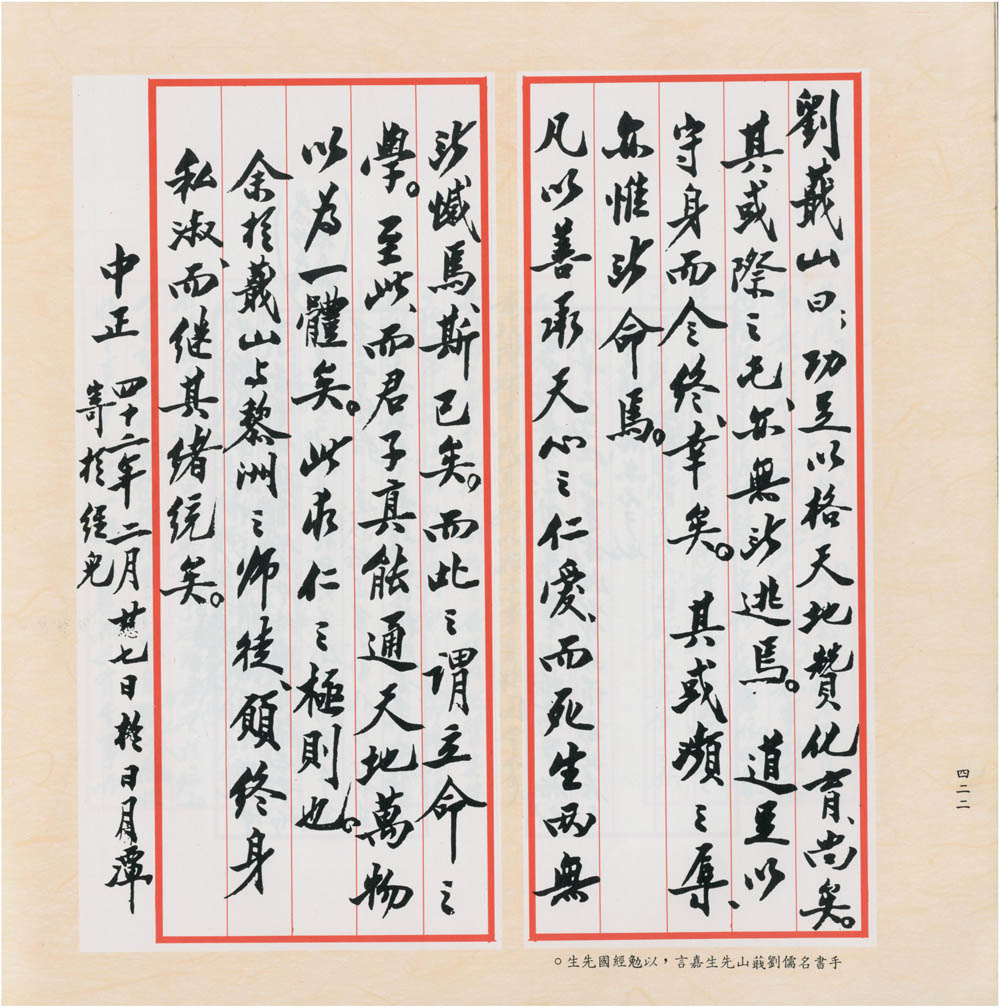 劉蕺山曰：功足以格天地贊化育、尚矣。
其或際之屯、亦無所逃焉。道足以
守身而令終、幸矣。其或瀕之辱、
亦惟所命焉。
凡以善承天心之仁愛、而死生兩無
所憾焉、斯已矣。而此之謂立命之
學。至此、而君子真能通天地萬物
以為一體矣。此求仁之極則也。
余於蕺山与黎洲之師徒、願終身
私淑、而继其緒統矣。
中正 四十二年二月廿七日於日月潭
寄於經兒
手書名儒劉蕺山先生嘉言，以勉經國先生。
四二二